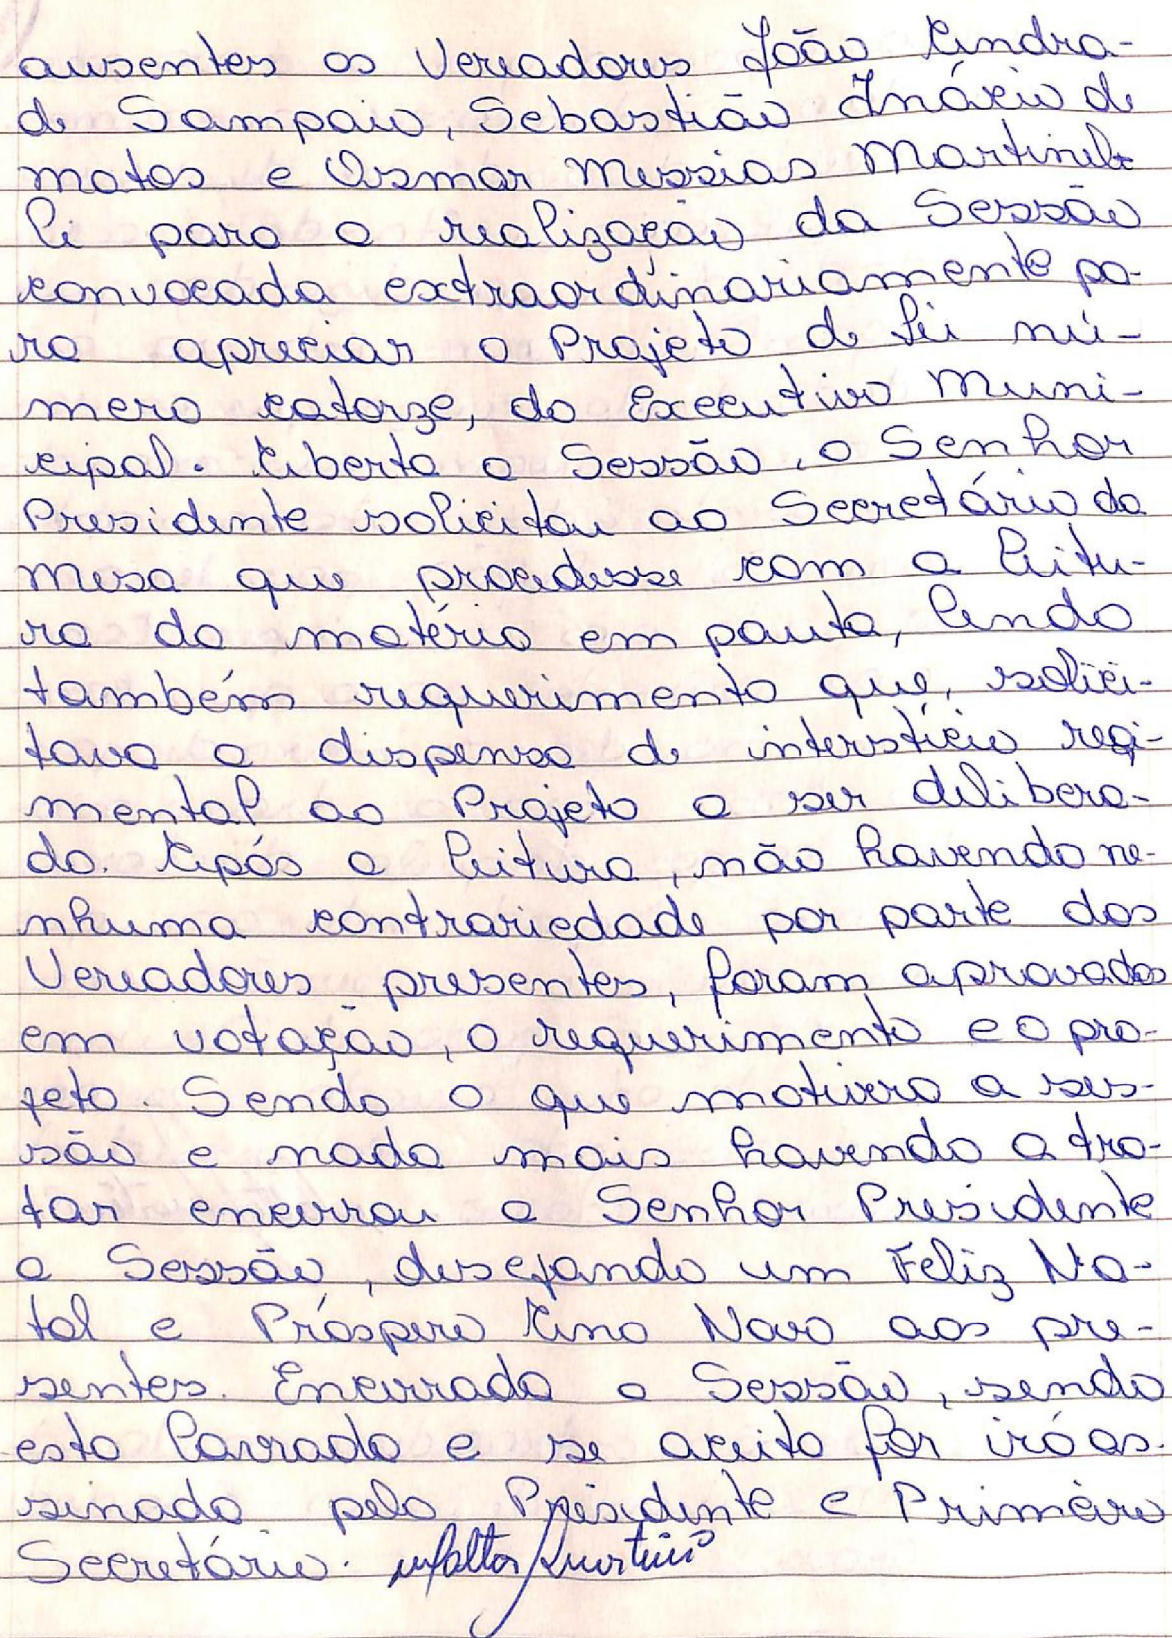 ausentes os Vereadores João Andra-
de Sampaio, Sebastião Inácio de
Matos e Osmar Messias Martinel-
li para a realização da Sessão
convocada extraordinariamente pa-
ra apreciar o Projeto de Lei nú-
mero catorze, do Executivo Muni-
cipal. Aberta a Sessão, o Senhor
Presidente solicitou ao Secretário da
Mesa que procedesse com a leitu-
ra da matéria em pauta, lendo
também requerimento que, solici-
tava a dispensa de interstício regi-
mental ao Projeto a ser delibera-
do. Após a leitura, não havendo ne-
nhuma contrariedade por parte dos
Vereadores presentes, foram aprovados
em votação, o requerimento e o pro-
jeto. Sendo o que motivara a ses-
são e nada mais havendo a tra-
tar encerrou o Senhor Presidente
a Sessão, desejando um Feliz Na-
tal e Próspero Ano Novo aos pre-
sentes. Encerrada a Sessão, sendo
esta lavrada e se aceita for irá as-
sinada pelo Presidente e Primeiro
Secretário.